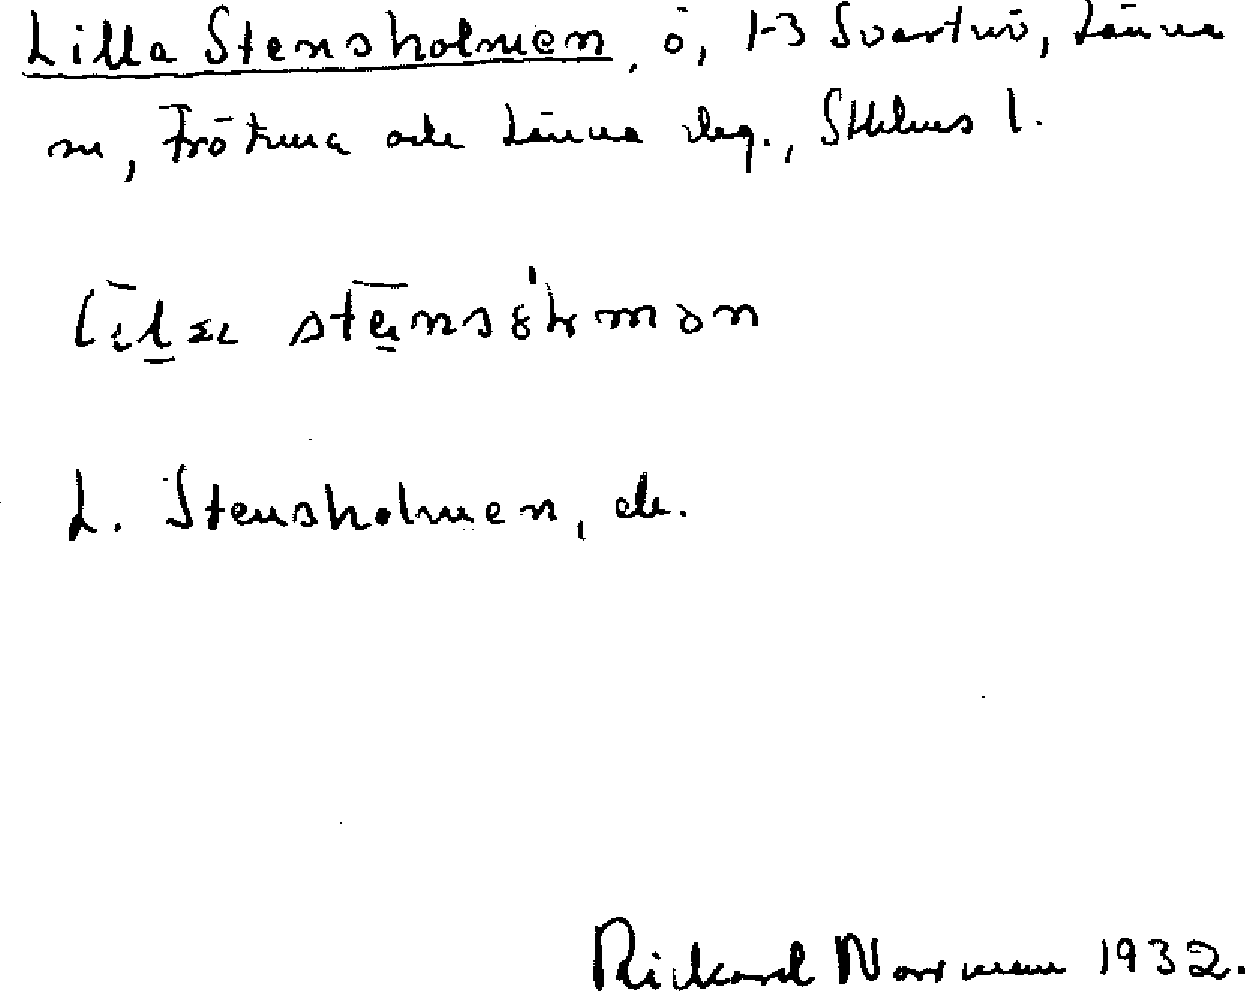 Lilla Stensholmen, ö, 1-3 Svartnö, Länna
sn, Frötuna och Länna skg., Sthlms l.
L. Stensholmen, ds.
Rickard Norrman 1932.